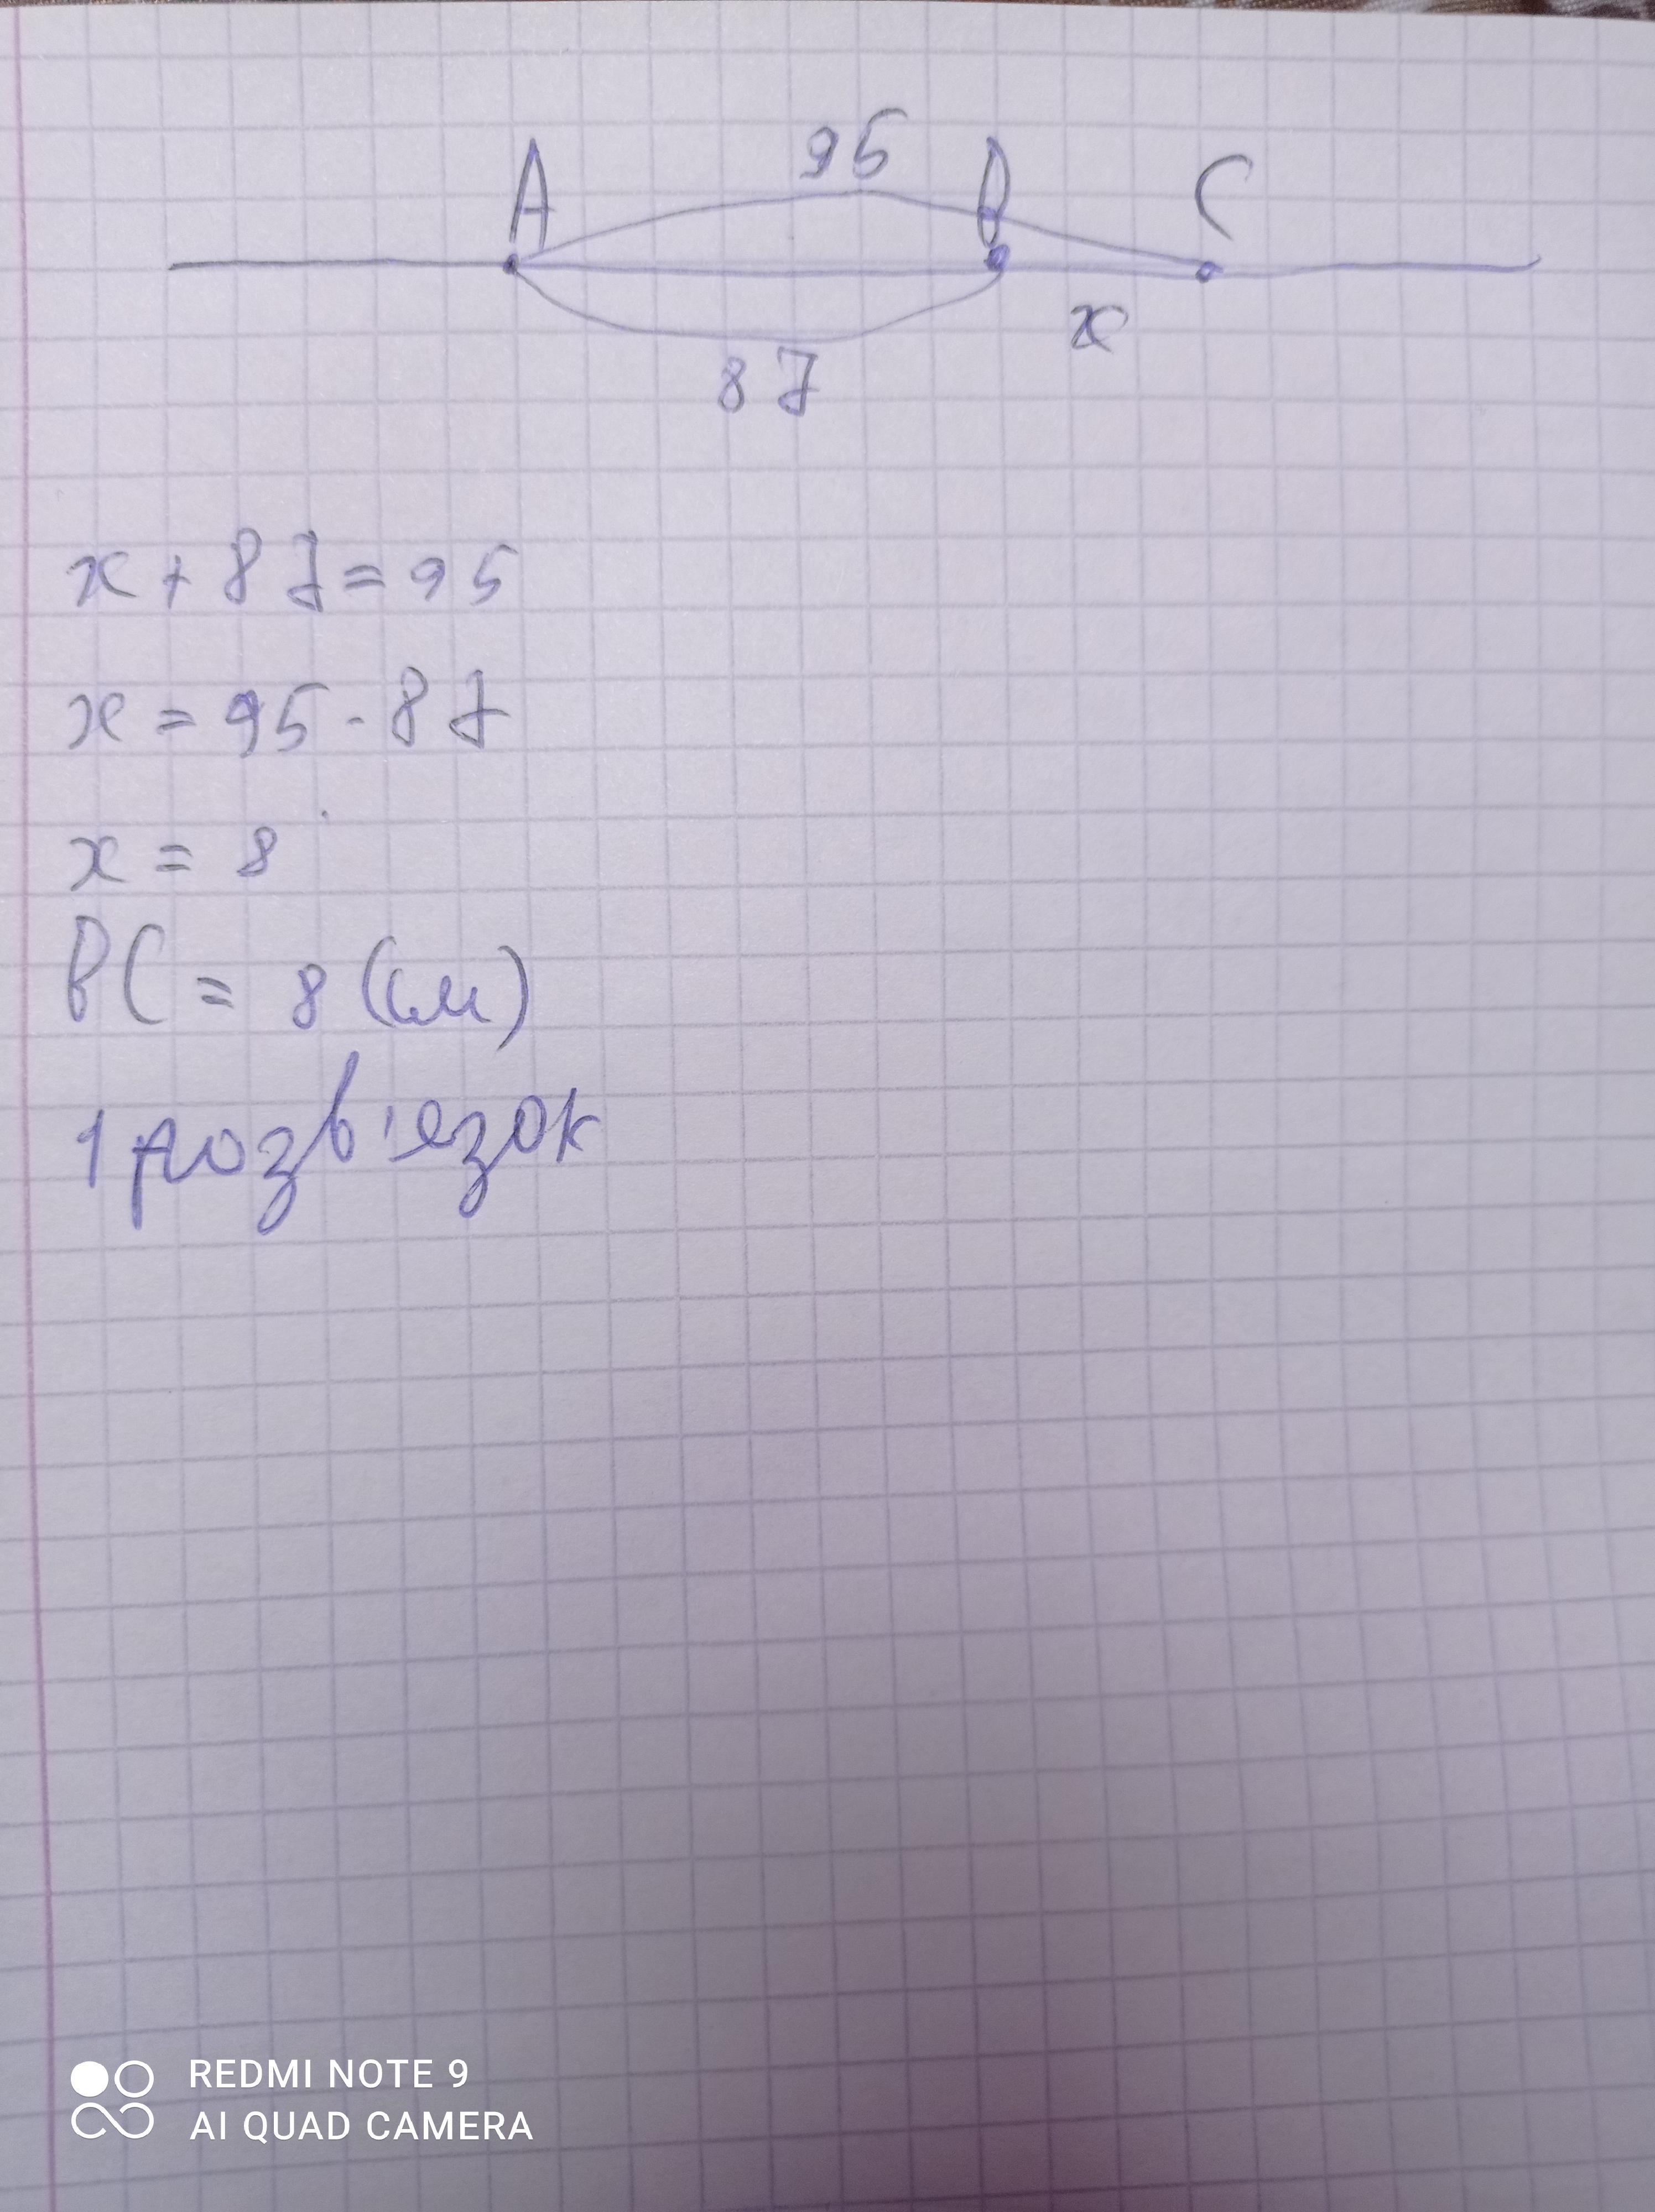 A 95 B C
87 x
x + 87 = 95
x = 95 - 87
x = 8
BC = 8 (см)
1 розв'язок
REDMI NOTE 9
AI QUAD CAMERA